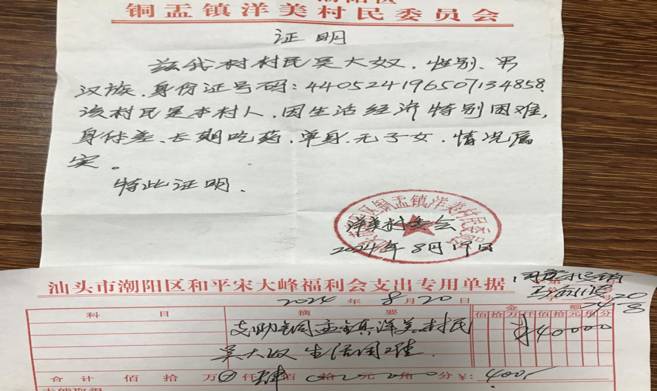 铜盂镇洋美村民委员会
证明
兹我村村民吴大奴，性别：男
汉族，身份证号码：440524196507134858，
该村民是本村人，因生活经济特别困难，
身体差、长期吃药，单身，无子女，情况属
实。
特此证明。
洋美村委会
2024年8月19日
汕头市潮阳区和平宋大峰福利会支出专用单据
2024年8月20日
科目 摘要 金额
支助铜盂镇洋美村民
吴大奴生活困难
¥40000
合计 佰 拾 万 仟 肆佰 拾 元 角 分 ¥：400